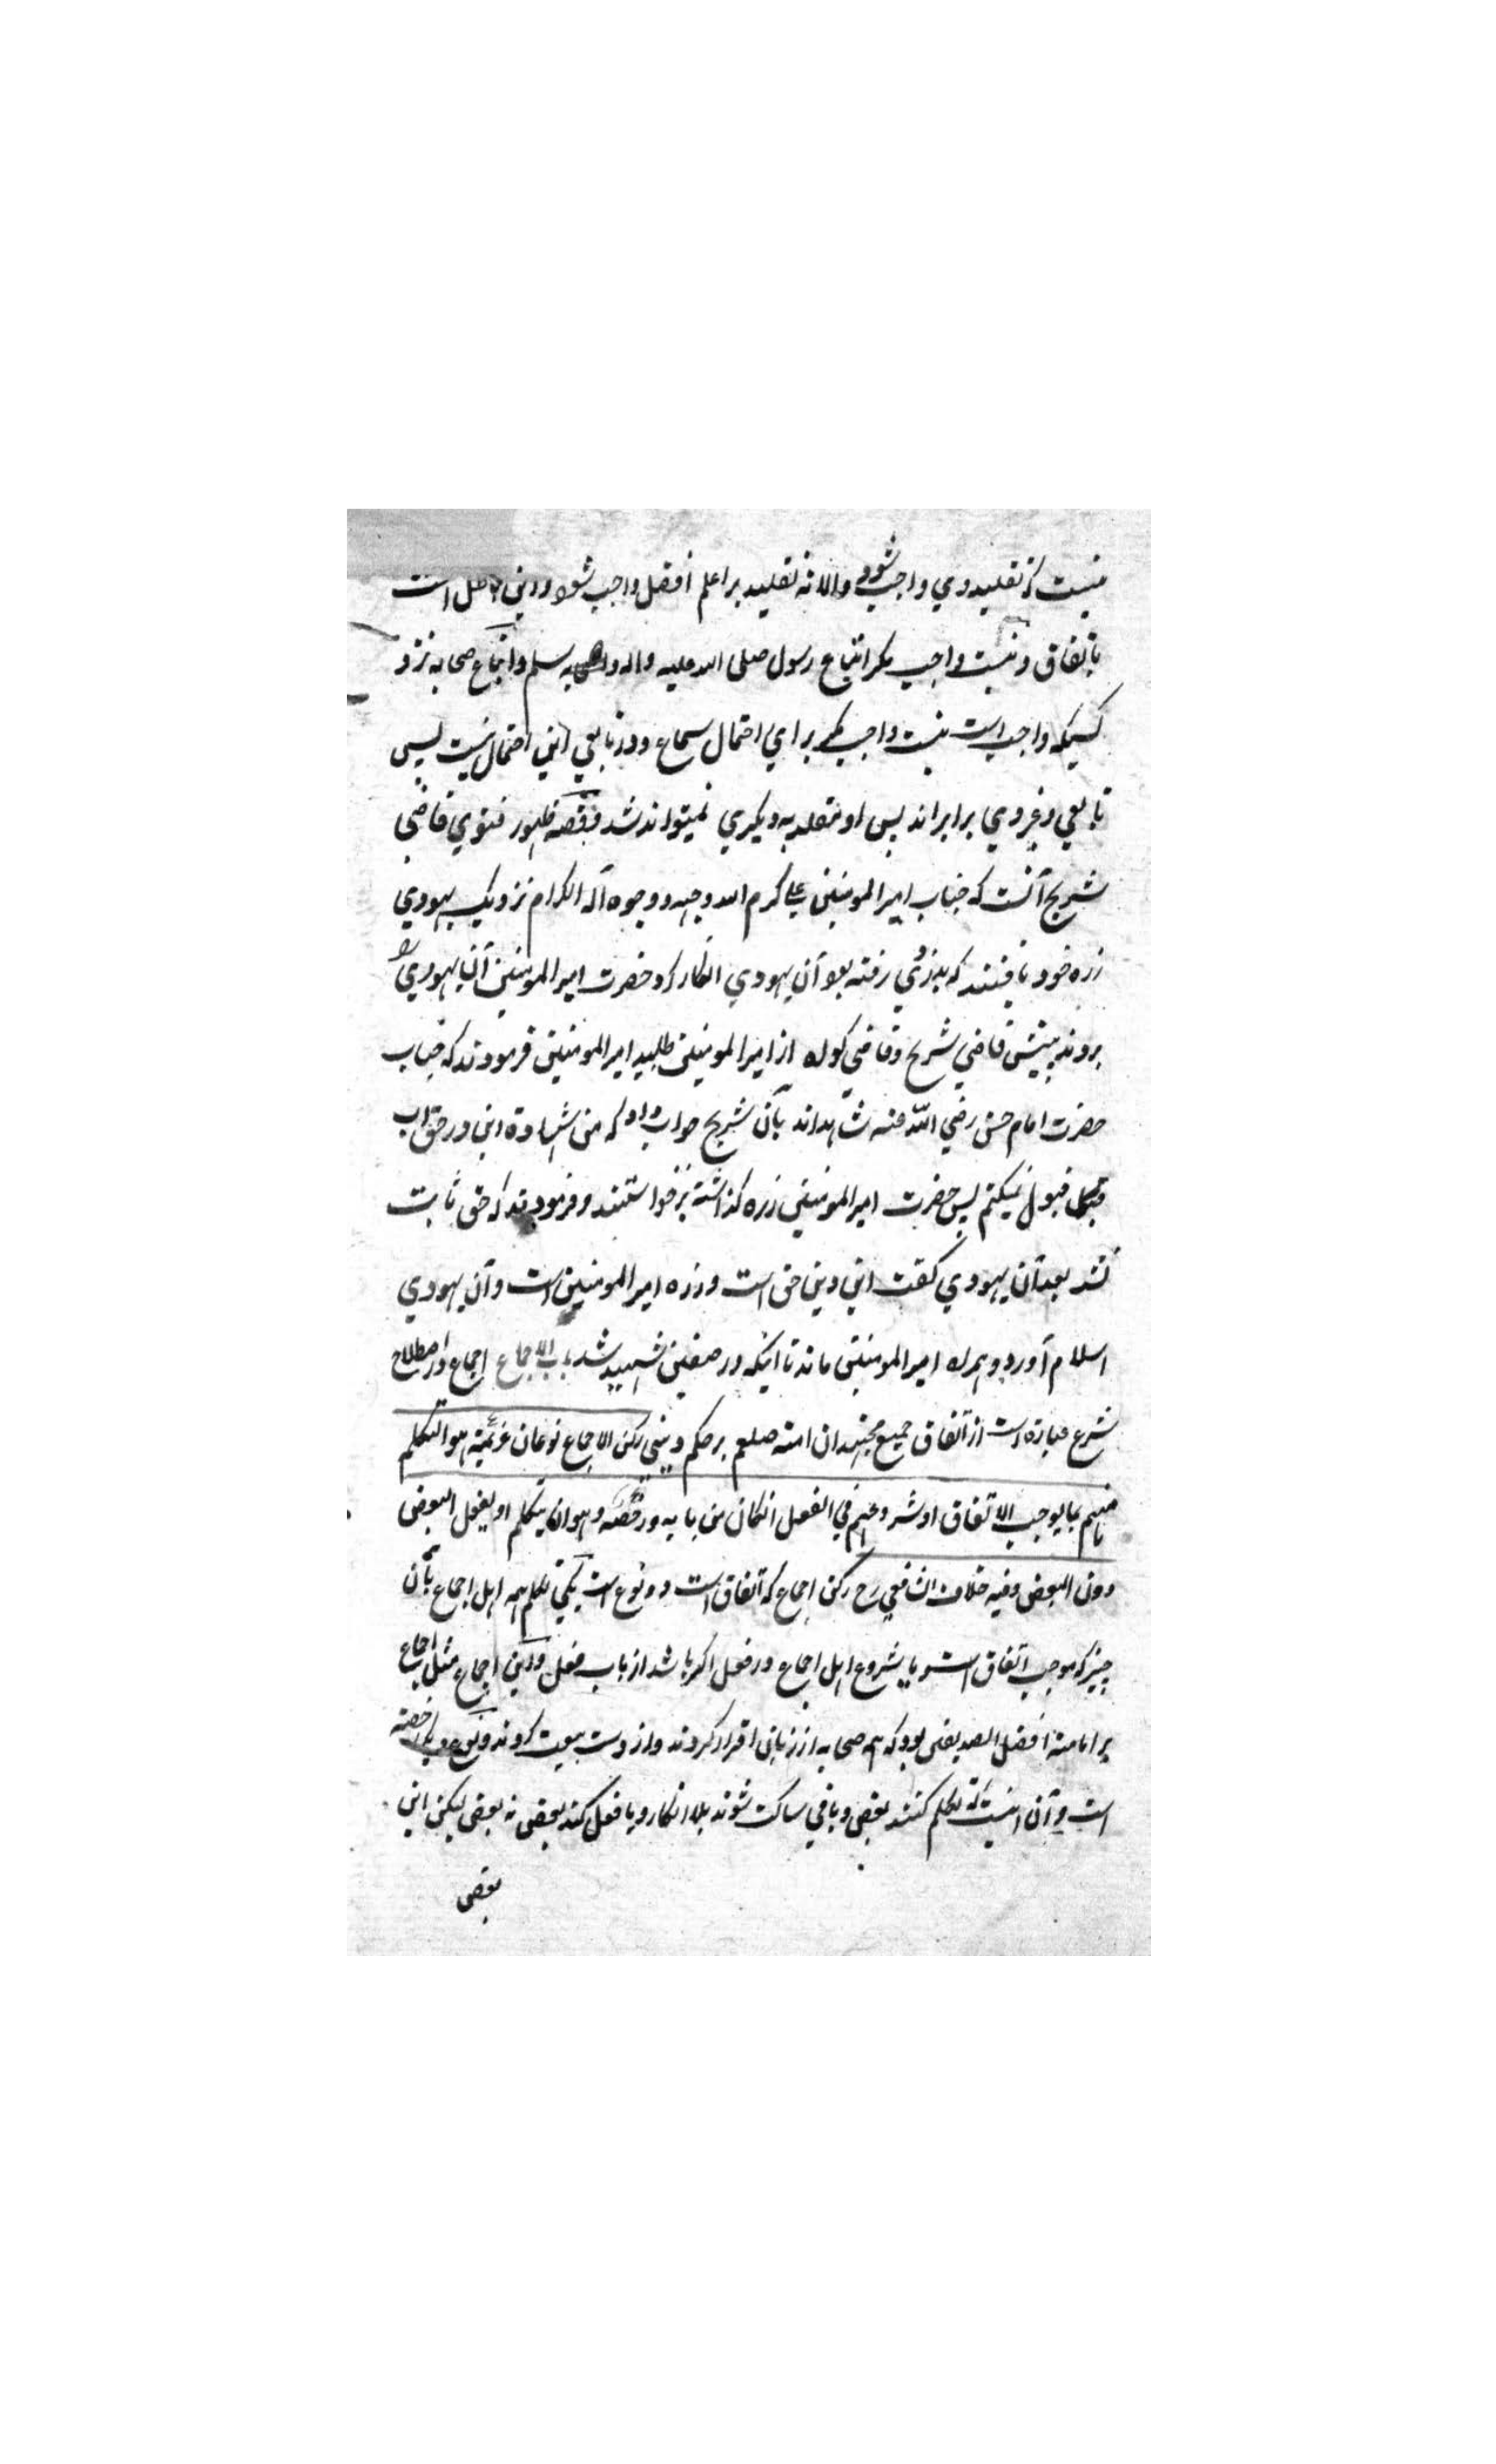 نیست که تقلید وي واجب شود والا نه تقلید بر اعلم افضل واجب شود واین باطل است
باتفاق ونیست واجب مکر اتباع رسول صلی الله علیه واله واصحابه وسلم واتباع صحابه نزد
کسیکه واجب است نیست واجب مکر براي احتمال سماع ودر تابعي این احتمال نیست پس
تابعي وغیر وي برابر اند پس او مقلد به دیکري نمیتواند شد وقصه ظهور فتوي قاضي
شریح آنست که جناب امیر المومنین علي کرم الله وجهه ووجوه آله الکرام نزدیک یهودي
زره خود یافتند که بدزدي رفته بود آن یهودي انکار کرد حضرت امیر المومنین آن یهودي را
بردند پیش قاضي شریح وقاضي کواه از امیر المومنین طلبید امیر المومنین فرمودند که جناب
حضرت امام حسن رضي الله عنه شاهد اند بآن شریح جواب داد که من شهادة ابن در حق اب
قبول نمیکنم پس حضرت امیر المومنین زره کذاشته برخواستند وفرمودند که حق ثابت
نشد بعد آن یهودي کفت این دین حق است وزره امیر المومنین است وآن یهودي
اسلام آورد وهمراه امیر المومنین ماند تا اینکه در صفین شهید شد باب الاجماع اجماع در اصطلاح
شرع عبارة است از اتفاق جمیع مجتهدان امته صلعم بر حکم دیني رکن الاجماع نوعان عزیمة هو التکلم
منهم بما یوجب الاتفاق او شروعهم في الفعل انکان من بابه ورخصة وهو ان یتکلم او یفعل البعض
دون البعض وفیه خلاف الشافعي رح رکن اجماع که اتفاق است دو نوع است یکي تکلم همه اهل اجماع بآن
چیز که موجب اتفاق است ویا شروع اهل اجماع در فعل اکر باشد از باب فعل واین اجماع مثل اجماع
بر امامة افضل الصدیقین بود که هم صحابه از زبان اقرار کردند واز دست بیعت کردند ونوع دیکر رخصة
است وآن اینست که تکلم کنند بعض وباقي ساکت شوند بلا انکار ویا فعل کند بعض نه بعض لیکن این
بعض